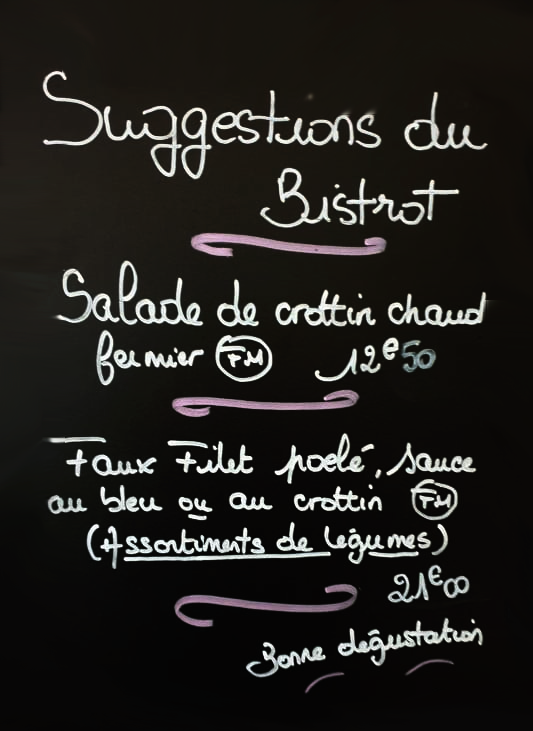 Suggestions du
Bistrot
Salade de crottin chaud
fermier FM 12€50
Faux Filet poelé, sauce
au bleu ou au crottin FM
(Assortiments de légumes)
21€00
Bonne dégustation